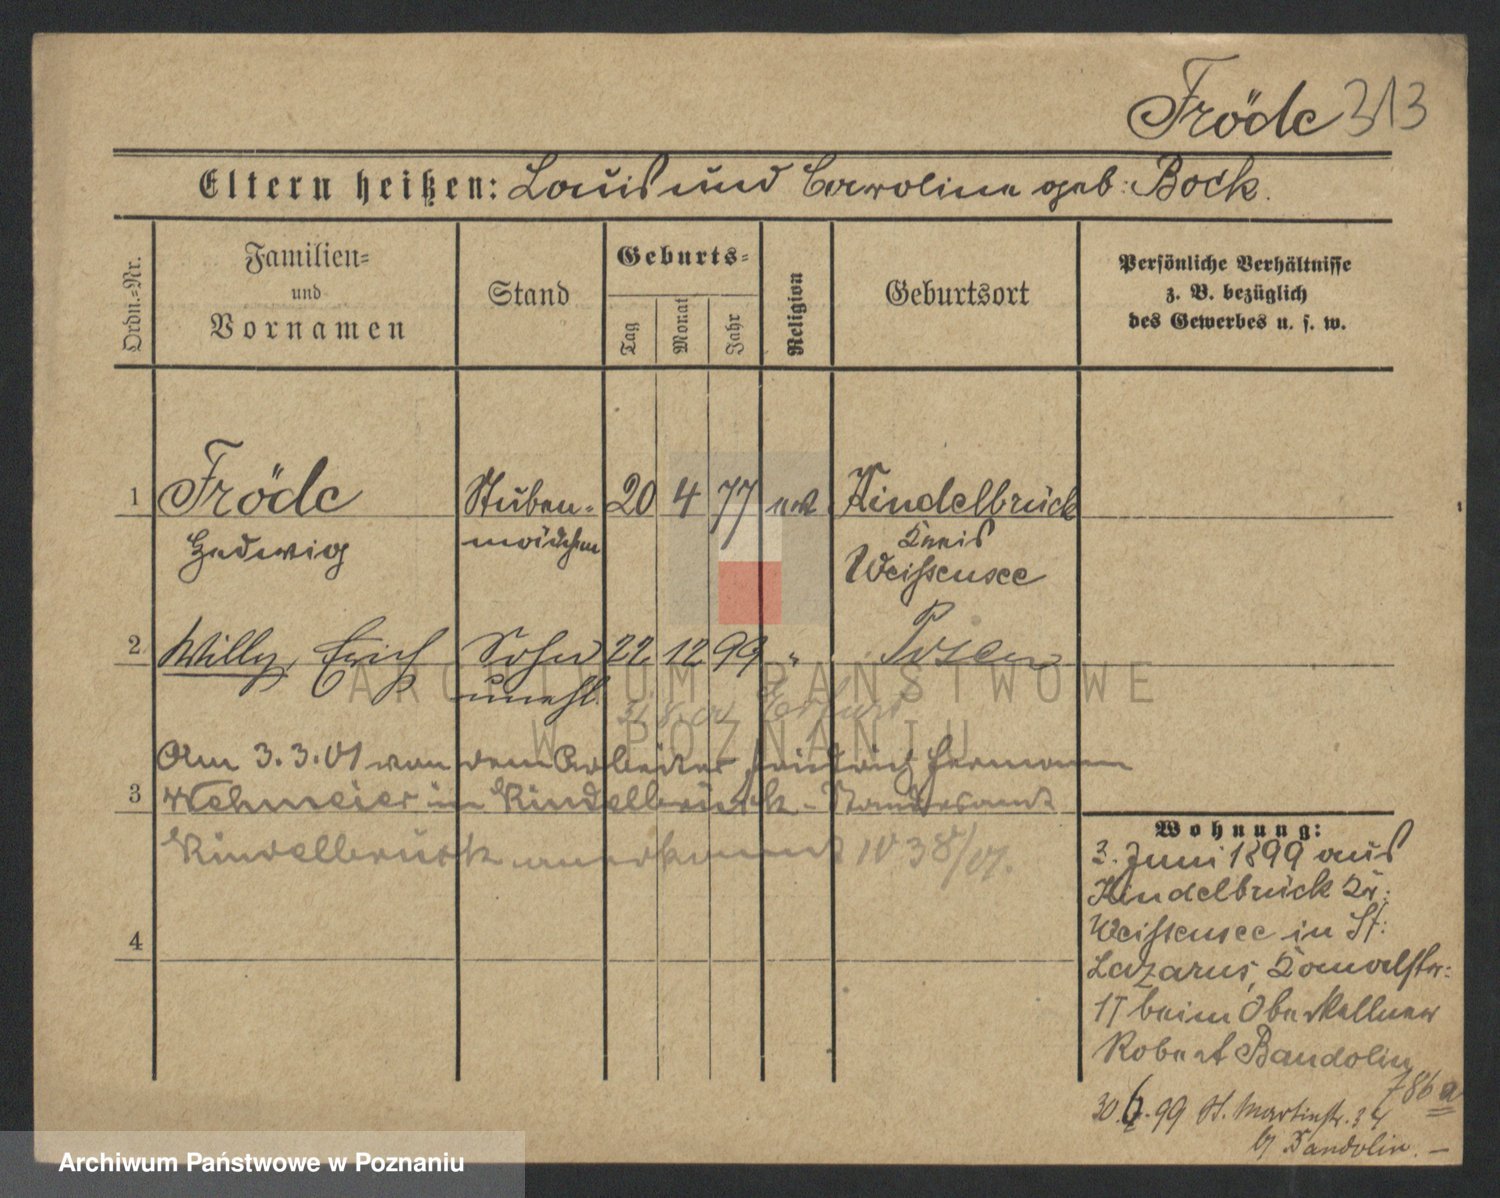 Fröde 313
Eltern heißen: Louis und Caroline geb: Bock.
Ordn.-Nr.
Familien- und Vornamen
Stand
Geburts-
Tag
Monat
Jahr
Religion
Geburtsort
Persönliche Verhältnisse
z. B. bezüglich
des Gewerbes u. s. w.
1 Fröde Stuben- 20 4 77 ev Kindelbrück
Hedwig mädchen Kreis
Weißensee
2 Willy, Erich Sohn 22 12 99 " Posen
unehl.
31.8.01 Erfurt
Am 3.3.01 von dem Arbeiter Friedrich Hermann
3 Wehmeier in Kindelbrück - Standesamt
Kindelbrück anerkannt IV 38/01.
4
Wohnung:
3. Juni 1899 aus
Kindelbrück Kr:
Weißensee in St:
Lazarus,
beim Oberkellner
Robert Bandolin
786 a
30.6.99 St. Martinstr. 34
b/ Bandolin. —
ARCHIWUM PAŃSTWOWE
W POZNANIU
Archiwum Państwowe w Poznaniu